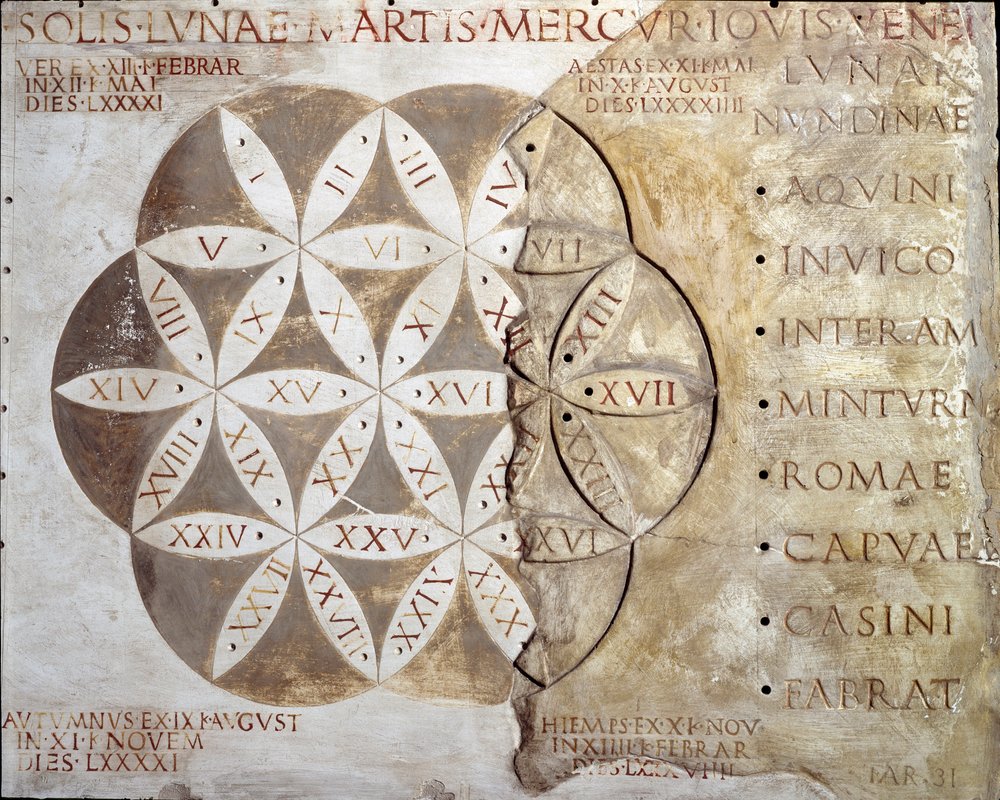 SOLIS·LVNAE·MARTIS·MERCVR·IOVIS·VENE
VER EX·XIII·K·FEBRAR
IN XII·K·MAI
DIES·LXXXXI
AESTAS EX·XII·K·MAI
IN·X·K·AVGVST
DIES·LXXXXIIII
LVNAR
NVNDINAE
AQVINI
IN VICO
INTERAM
MINTVRN
ROMAE
CAPVAE
CASINI
FABRAT
I
II
III
IV
V
VI
VII
VIII
IX
X
XI
XII
XIII
XIV
XV
XVI
XVII
XVIII
XIX
XX
XXI
XXII
XXIII
XXIV
XXV
XXVI
XXVII
XXVIII
XXIX
XXX
AVTVMNVS·EX·IX·K·AVGVST
IN·XI·K·NOVEM
DIES·LXXXXI
HIEMPS·EX·X·K·NOV
IN XIIII·K·FEBRAR
DIES·LXXXVIIII
31